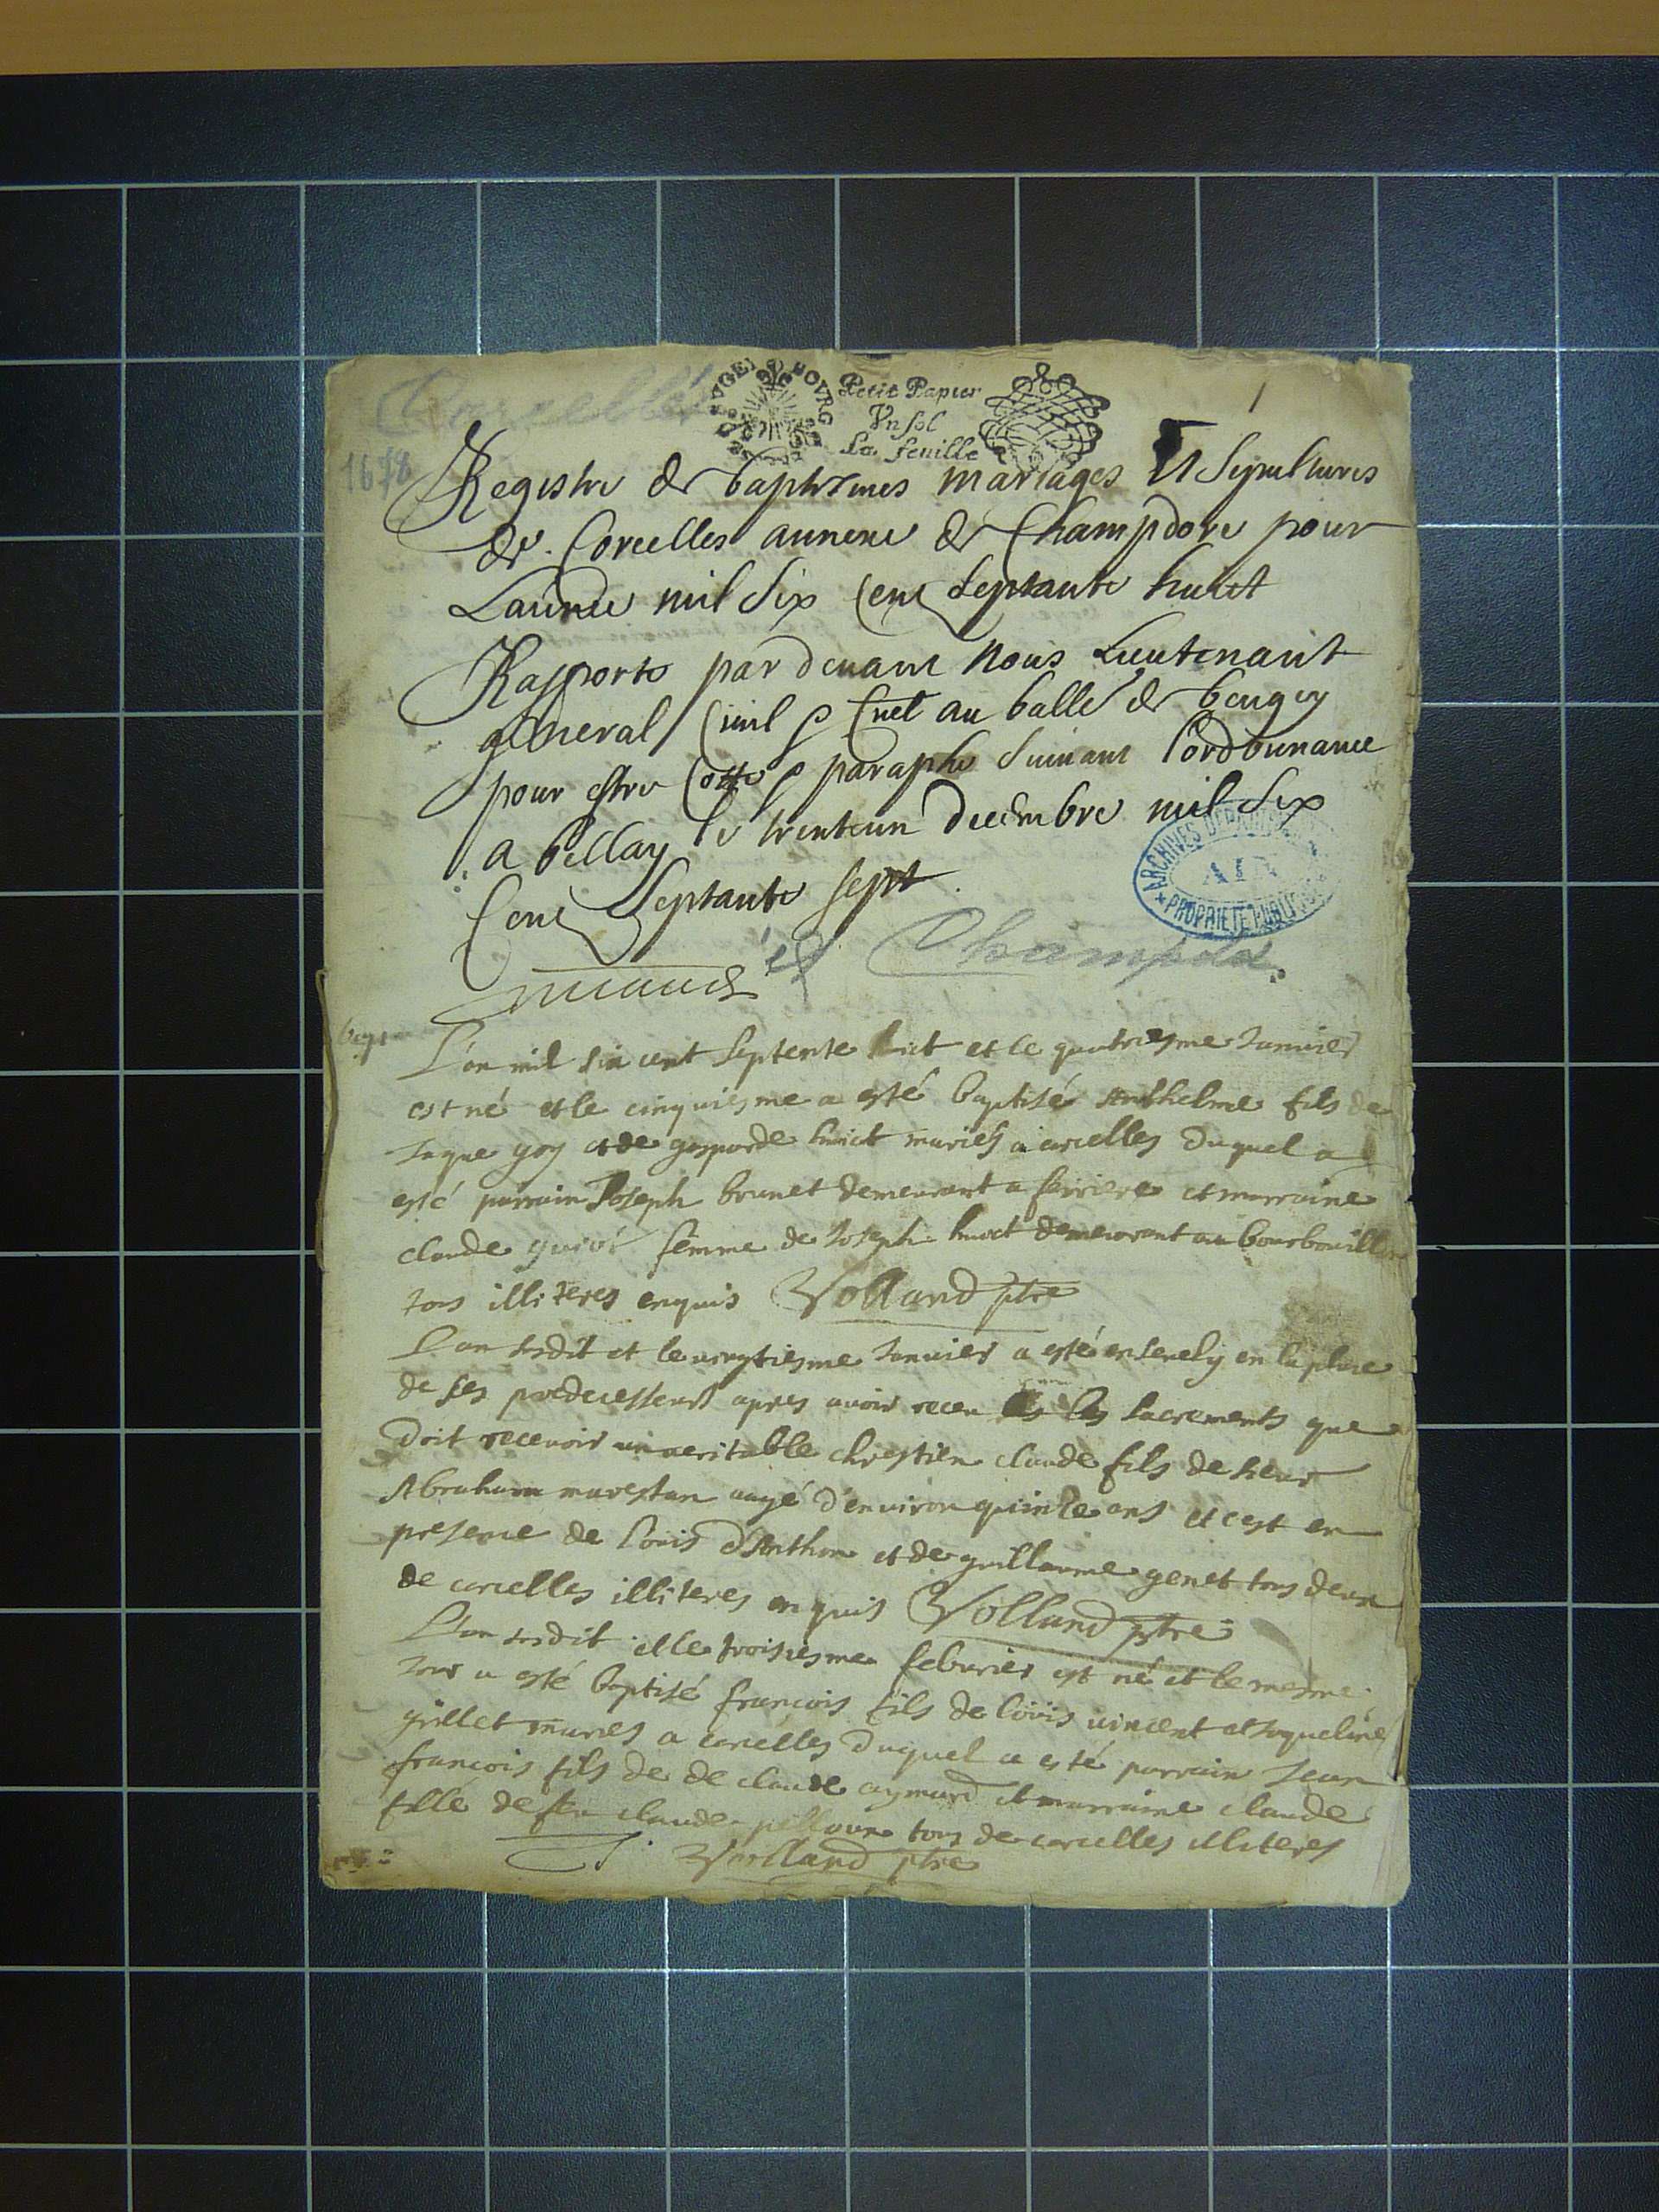 Corcelles
1678
BVGEI BOVRG
Petit Papier
Vn sol
La feuille
1
Registre de baptesmes mariages Et Sepultures
de Corcelles annexe de Champdore pour
Lannee mil six Cent Septante huict
Rapporte par devant Nous Lieutenant
general Civil & Cnel au balle de beugey
pour estre Cotte & paraphe suivant lordonnance
a bellay le trenteun decembre mil six
Cent Septante sept
et Champdor
ARCHIVES DEPARTEMENTALES
AIN
PROPRIETE PUBLIQUE
bapt
L'an mil six cent septente huit et le quatriesme Januier
est né et le cinquiesme a esté baptisé Anthelme fils de
Jaque goy et de gasparde huict mariés a corcelles duquel a
esté parrain Joseph brunet demeurant a ferriere et marraine
claude femme de Joseph huict demeurant au bourbouillon
tous illiteres enquis Volland ptre
L'an susdit et le vingtiesme Januier a esté ensevely en la place
de ses predecesseurs apres avoir receu les sacrements que
doit recevoir un veritable chrestien claude fils de sieur
Abraham marestan aagé d'environ quinze ans et c'est en
presence de Louis d'Anthon et de guillaume genet tous deux
de corcelles illiteres enquis Volland ptre
L'an susdit et le troisiesme feburier est né et le mesme
Jour a esté baptisé francois fils de Loüis vincent et Jaqueline
grillet mariés a corcelles duquel a esté parrain Jean
francois fils de de claude aymard et marraine claude
fille de feu claude tous de corcelles illiteres
Volland ptre